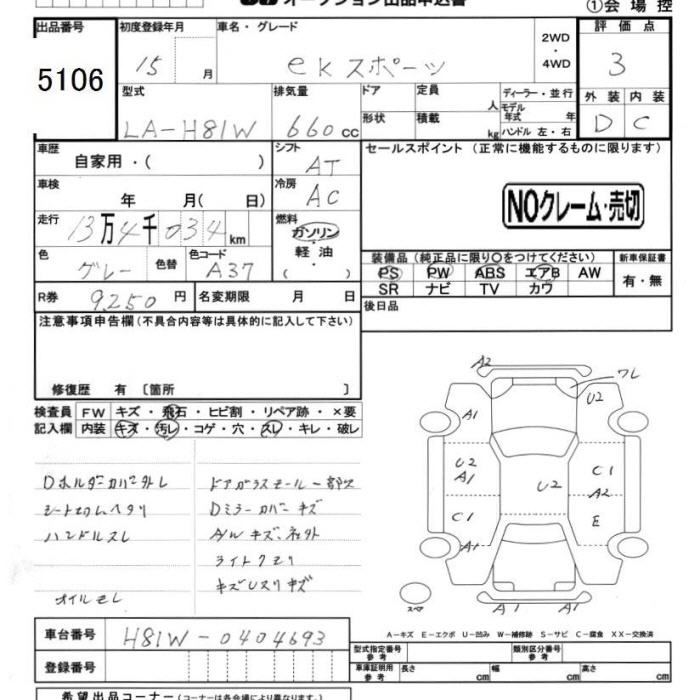 オークション出品申込書
①会場控
出品番号 初度登録年月 車名・グレード 評価点
5106 15 月 ekスポーツ 2WD・4WD 3
型式 排気量 ドア 定員 人 ディーラー・並行 外装 内装
LA-H81W 660cc 形状 積載 kg モデル年式 年 ハンドル 左・右 D C
車歴 自家用・( ) シフト AT セールスポイント (正常に機能するものに限ります)
車検 年 月( 日) 冷房 AC
NOクレーム・売切
走行 13万4千034km 燃料 ガソリン・軽油・( )
色 グレー 色替 色コード A37 装備品 (純正品に限り○をつけてください) 新車保証書
PS PW ABS エアB AW 有・無
SR ナビ TV カワ
R券 9250円 名変期限 月 日 後日品
注意事項申告欄 (不具合内容等は具体的に記入して下さい)
修復歴 有 〔箇所 〕
検査員 FW キズ・飛石・ヒビ割・リペア跡・×要
記入欄 内装 キズ・汚レ・コゲ・穴・スレ・キレ・破レ
Dホルダーカバー外レ
シート切レヘタリ
ハンドルスレ
オイルモレ
ドアガラスモール一部欠
Dミラーカバーキズ
A/Wキズ、
ライトクモリ
キズUスリキズ
A2 ワレ
A1 U2
U2 A1 U2 C1
A2
C1 E
A1
スペア A1 A1
A-キズ E-エクボ U-凹み W-補修跡 S-サビ C-腐食 XX-交換済
車台番号 H81W-0404693
登録番号
型式指定番号 参考 類別区分番号 参考
車庫証明用 参考 長さ cm 幅 cm 高さ cm
希望出品コーナー (コーナーは各会場により異なります。)